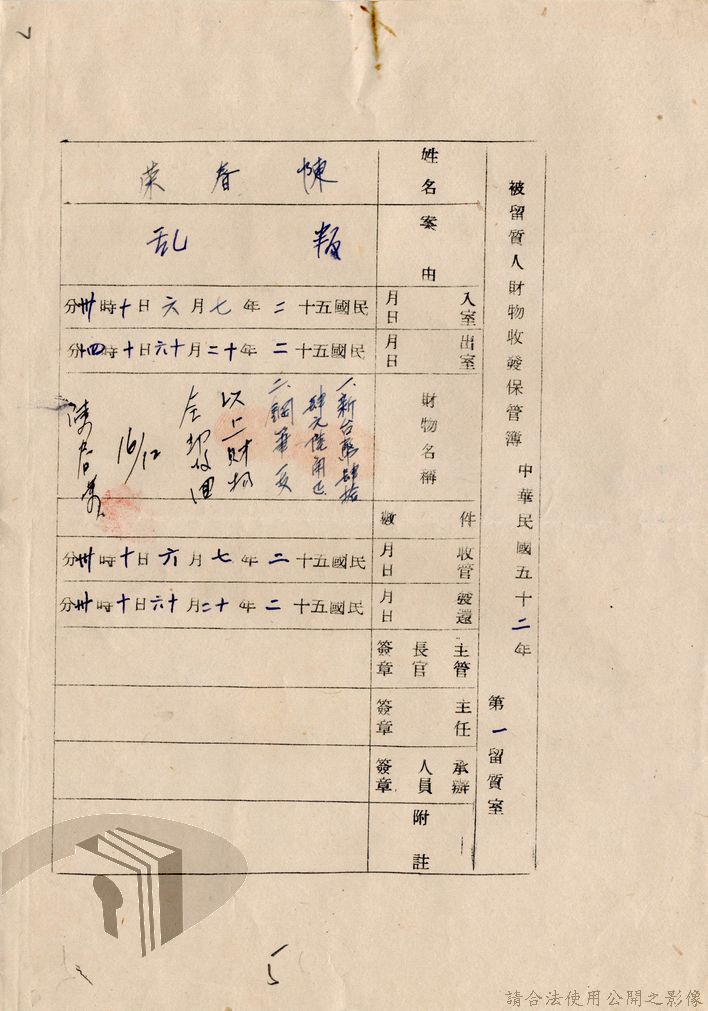 被留質人財物收發保管簿 中華民國五十二年 第一留質室
姓名
陳春榮
案由
叛乱
入室月日
民國五十二年七月六日十時卅分
出室月日
民國五十二年十二月十六日十時十四分
財物名稱
一、新台幣肆拾
肆元陸角正
二、鋼筆一支
以上財物
全部收回
16/12
陳春榮
件數
收管月日
民國五十二年七月六日十時卅分
發還月日
民國五十二年十二月十六日十時卅分
主管長官簽章
主任簽章
承辦人員簽章
附註
請合法使用公開之影像